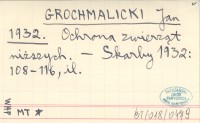 GROCHMALICKI Jan
1932. Ochrona zwierząt
niższych. — Skarby 1932:
108-116, il.
WHP MT *